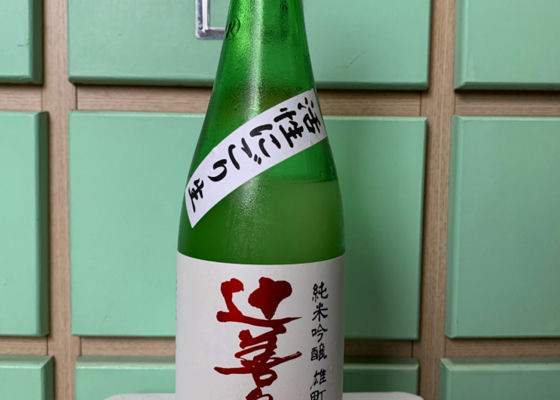 活性にごり生
純米吟醸 雄町
辻善